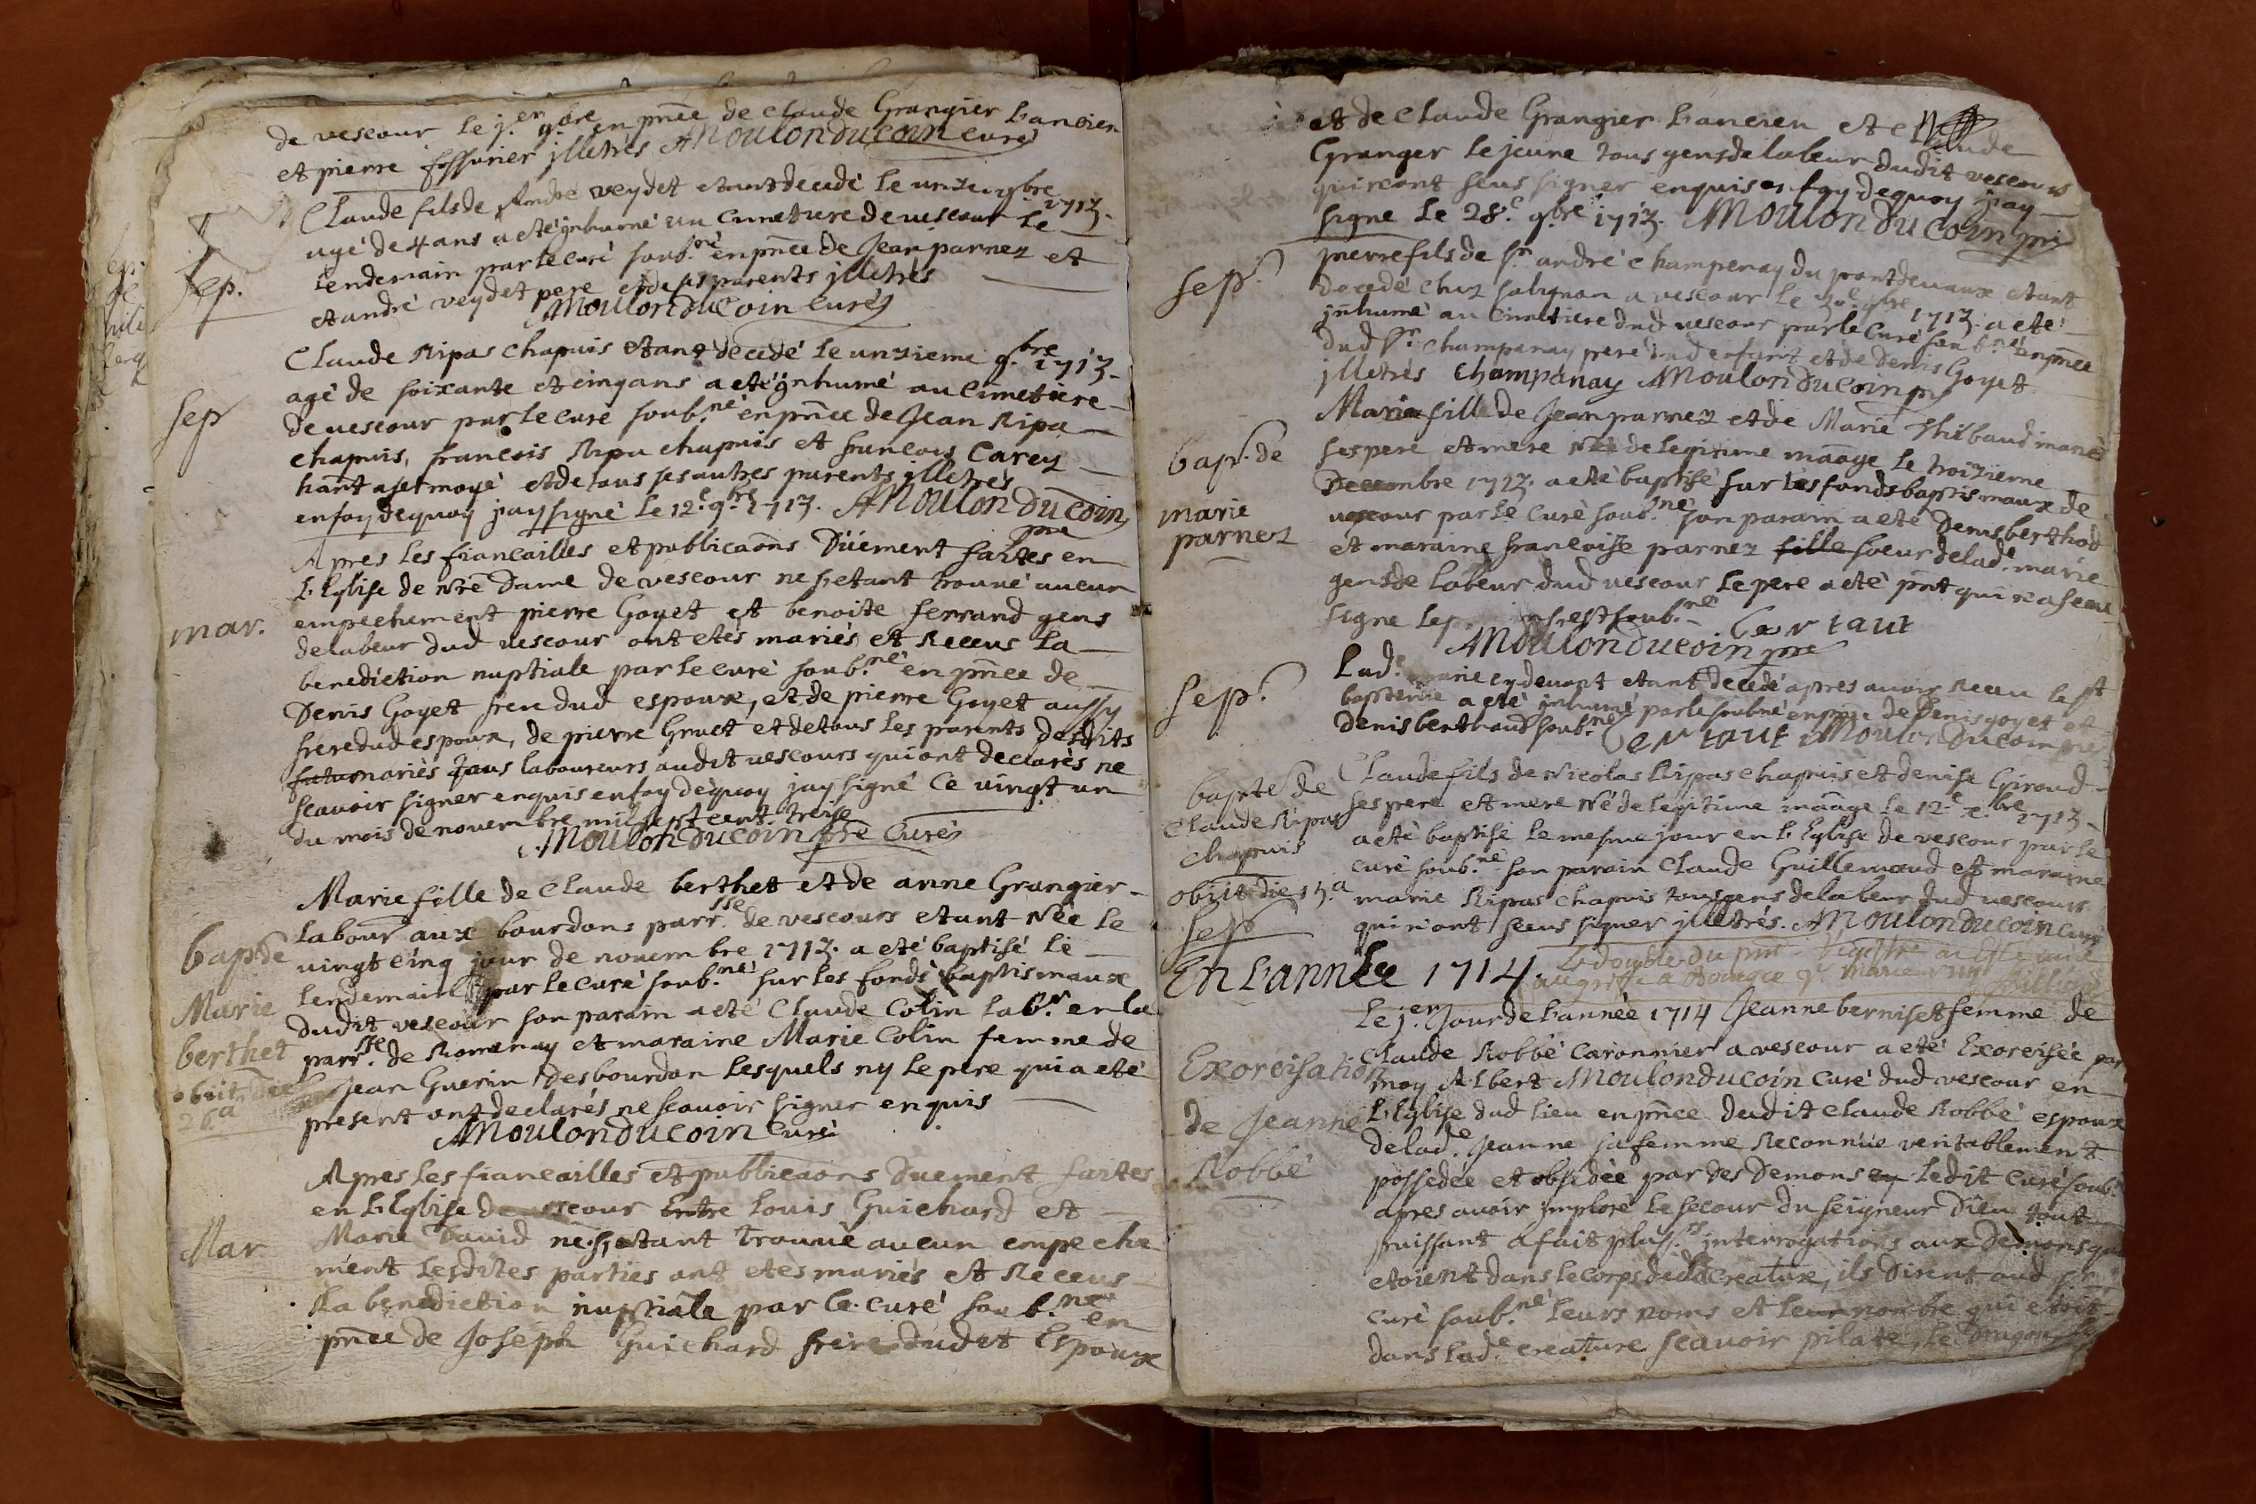 de vescour le j.er 9.bre en pñce de Claude Grangier L'ancien
et pierre fossurier jlletrés AMoulonducoin Curé
Sep.
Claude fils de André veydet etant decedé le unze 9bre 1713.
agé de 4 ans a eté jnhumé au Cimetiere de vescour le
lendemain par le curé soub.né en pñce de Jean parnez et
et andré veydet pere et de ses parents jlletrés
AMoulonducoin Curé
Sep
Claude Ripas Chapuis etant decedé le unzieme 9.bre 1713.
agé de soixante et cinq ans a eté jnhumé au Cimetiere
de vescour par le curé soub.né en pñce de Jean Ripa
chapuis, francois Ripa chapuis et francois Carey
et de tous ses autres parents jlletrés
en foy de quoy j'ay signé le 12.e 9.bre 1713. AMoulonDucoin
pre
mar.
Apres les fiancailles et publicaõns Düement faites en
L'Eglise de Nrẽ Dame de vescour ne s'etant trouvé aucun
empechement pierre Goyet et benoite ferrand gens
de labeur dud vescour ont etés mariés et Receus La
benediction nuptiale par le curé soub.né en pñce de
Denis Goyet frere dud espoux, et de pierre Goyet aussy
frere dud espoux, de pierre Gruet et de tous les parents desdits
futu mariés tous laboureurs audit vescours qui ont declarés ne
scavoir signer enquis en foy dequoy jay signé Ce vingt un
du mois de novembre mil sept cent treise
AMoulonDucoin pre Curé
bap.de
Marie
berthet
obiit die
26.a
Marie fille de Claude berthet et de anne Grangier
labour aux bourdons parr.sse de vescours etant Née le
vingt cinq jour de novembre 1713. a eté baptisé le
lendemain par le curé soub.né sur les fonds baptismaux
dudit vescour son parain a eté Claude Colin lab.r en la
parr.sse de Romenay et maraine Marie Colin femme de
Jean Guerin Desbourdon lesquels ny le pere qui a eté
present ont declarés ne scavoir signer enquis
AMoulonducoin Curé
Mar
Apres les fiancailles et publicaons Duement faites
en L'Eglise de vescour Entre Louis Guichard et
Marie David ne s'etant trouvé aucun empeche
ment lesdites parties ont etés mariés et Receus
La benediction nuptiale par le curé soub.né en
pñce de Joseph Guichard frere dudit Espoux
et de Claude Grangier L'ancien et Claude
Granger le jeune tous gens de labeur dudit vescours
qui n'ont sceus signer enquis en foy dequoy j'ay
signe le 28.e 9.bre 1713. AMoulonDucoin pre
sep.
pierre fils de s.r andré Champenay du pontdevaux etant
decedé chez a vescour le 30e 9bre 1713. a eté
jnhumé au Cimetiere dud vescour par le Curé soub.né en pñce
dud s.r Champanay pere dud enfant et de Denis Goyet
jlletrés Champanay AMoulonDucoin pre
bap. de
marie
parnez
Marie fille de Jean parnez et de Marie Thibaud mariés
ses pere et mere Née de legitime mãage le troizieme
Decembre 1713. a eté baptisé sur les fonds baptismaux de
vescour par le Curé soub.né son parain a eté Denis berthod
et maraine francoise parnez fille soeur de lad.e marie
gens de labeur dud vescour le pere a eté pñt qui n'a sceu
signe le s'est soub.né Cartaut
AMoulonDucoin pre
sep.
Lad.e marie cy devant etant decedé apres avoir Receu le st
baptême a eté jnhumé par le soubné en pñce de Denis goyet et
Denis berthaud soub.né Cartaut AMoulonDucoin pre
bapte de
Claude Ripas
Chapuis
obiit die 15.a
sep
Claude fils de Nicolas Ripas chapuis et denise Giroud
ses pere et mere Né de legitime mãage le 12.e x.bre 1713
a eté baptisé le mesme jour en L'Eglise de vescour par le
curé soub.né son parain Claude Guillemaud et maraine
marie Ripas chapuis tous gens de labeur dud vescour
qui n'ont sceus signer jlletrés. AMoulonDucoin Curé
En L'année 1714.
Le double du pñt a eté
au greffe a
Exorcisation
de Jeanne
Robbé
Le j.er Jour de L'année 1714 Jeanne berniset femme de
Claude Robbé Caronnier a vescour a eté Exorcisée par
moy Albert Moulonducoin Curé dud vescour en
L'Eglise dud lieu en pñce dudit Claude Robbé espoux
de lad.e Jeanne sa femme Reconnüe veritablement
possedée et obsedée par des Demons ledit Curé soub.
apres avoir jmploré le secour du seigneur Dieu tout
puissant a fait plus.rs jnterrogations aux Demons qui
etoient dans le corps de lad creature, ils Dirent aud sr
Curé soub.né leurs noms et leur nombre qui etoit
dans lad.e creature scavoir pilate, le Dragon